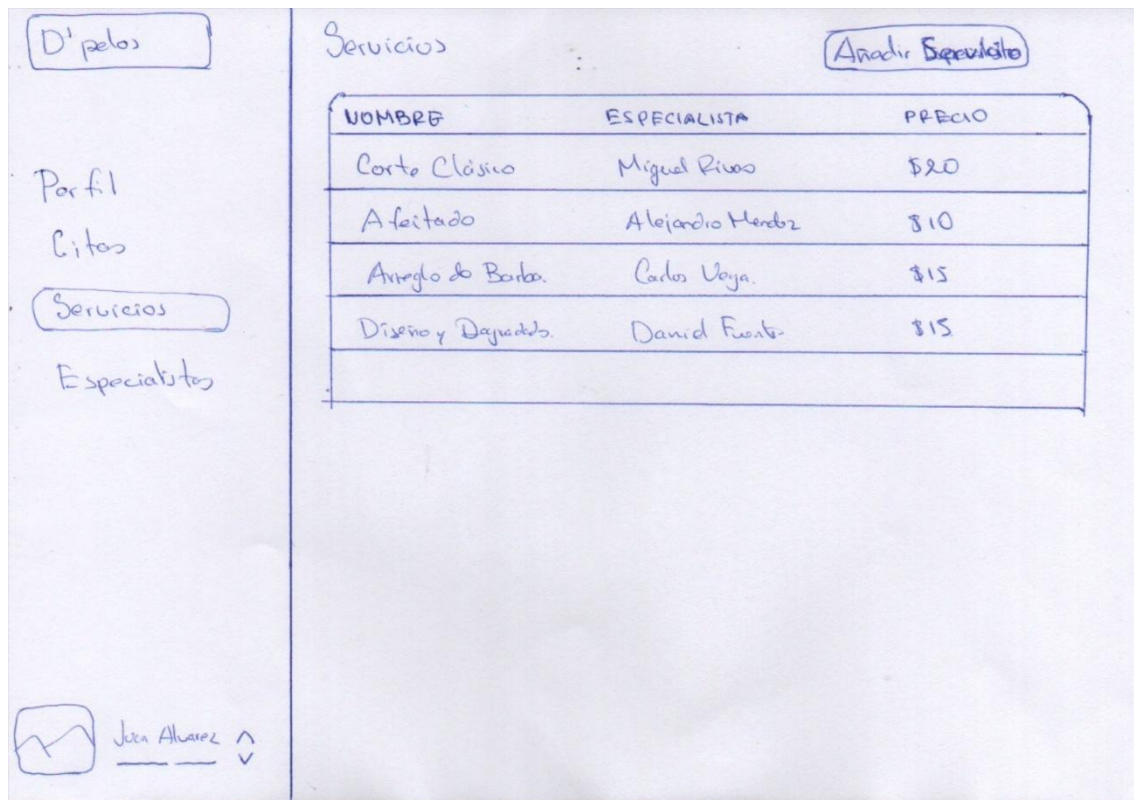 D'pelos
Perfil
Citas
Servicios
Especialistas
Juan Alvarez
Servicios
Añadir
NOMBRE ESPECIALISTA PRECIO
Corte Clásico Miguel Rivas $20
Afeitado Alejandro Mendoz $10
Arreglo do Barba. Carlos Vega. $15
Diseño y Daniel $15